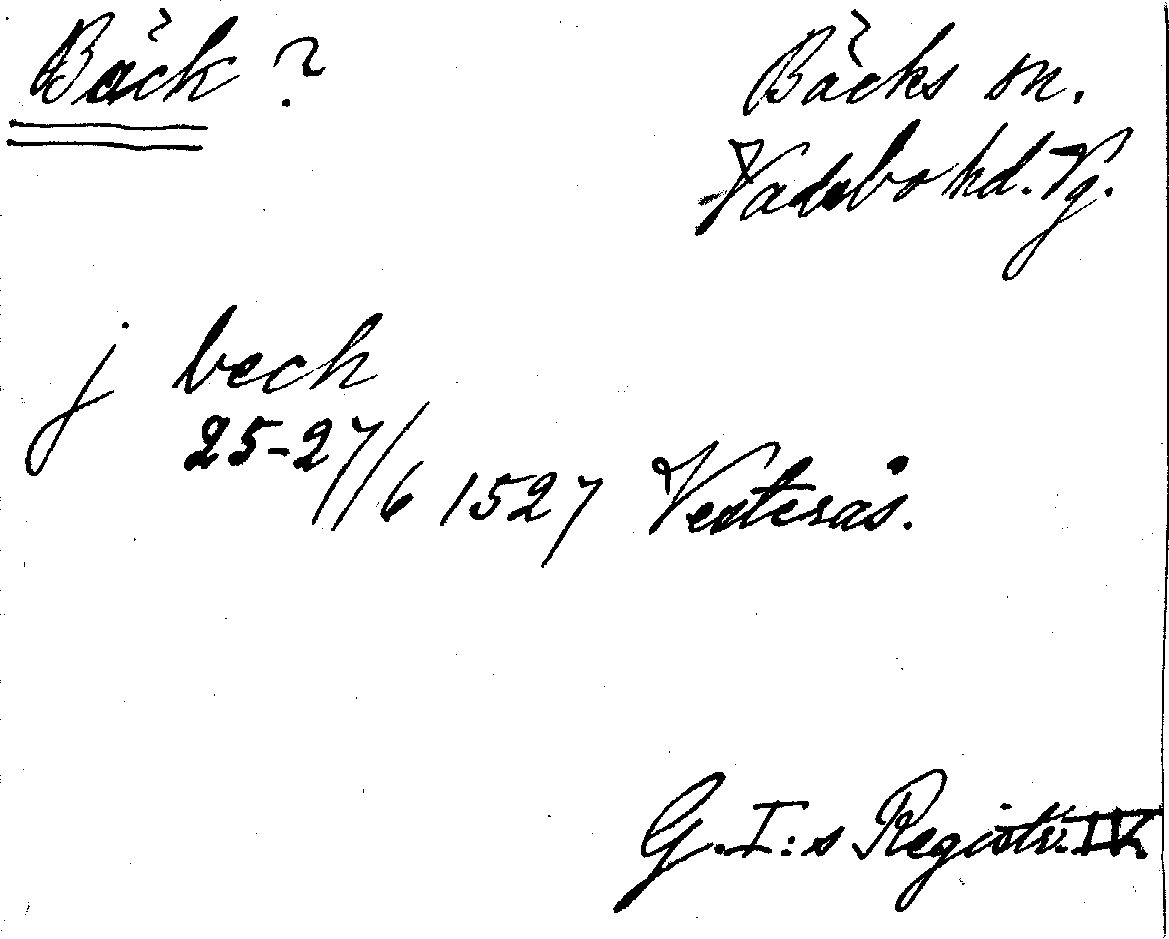 Bäck ?
Bäcks sn.
Vadsbo hd. Vg.
j bech
25-27/6 1527 Vesterås.
G.I:s Registr. IV